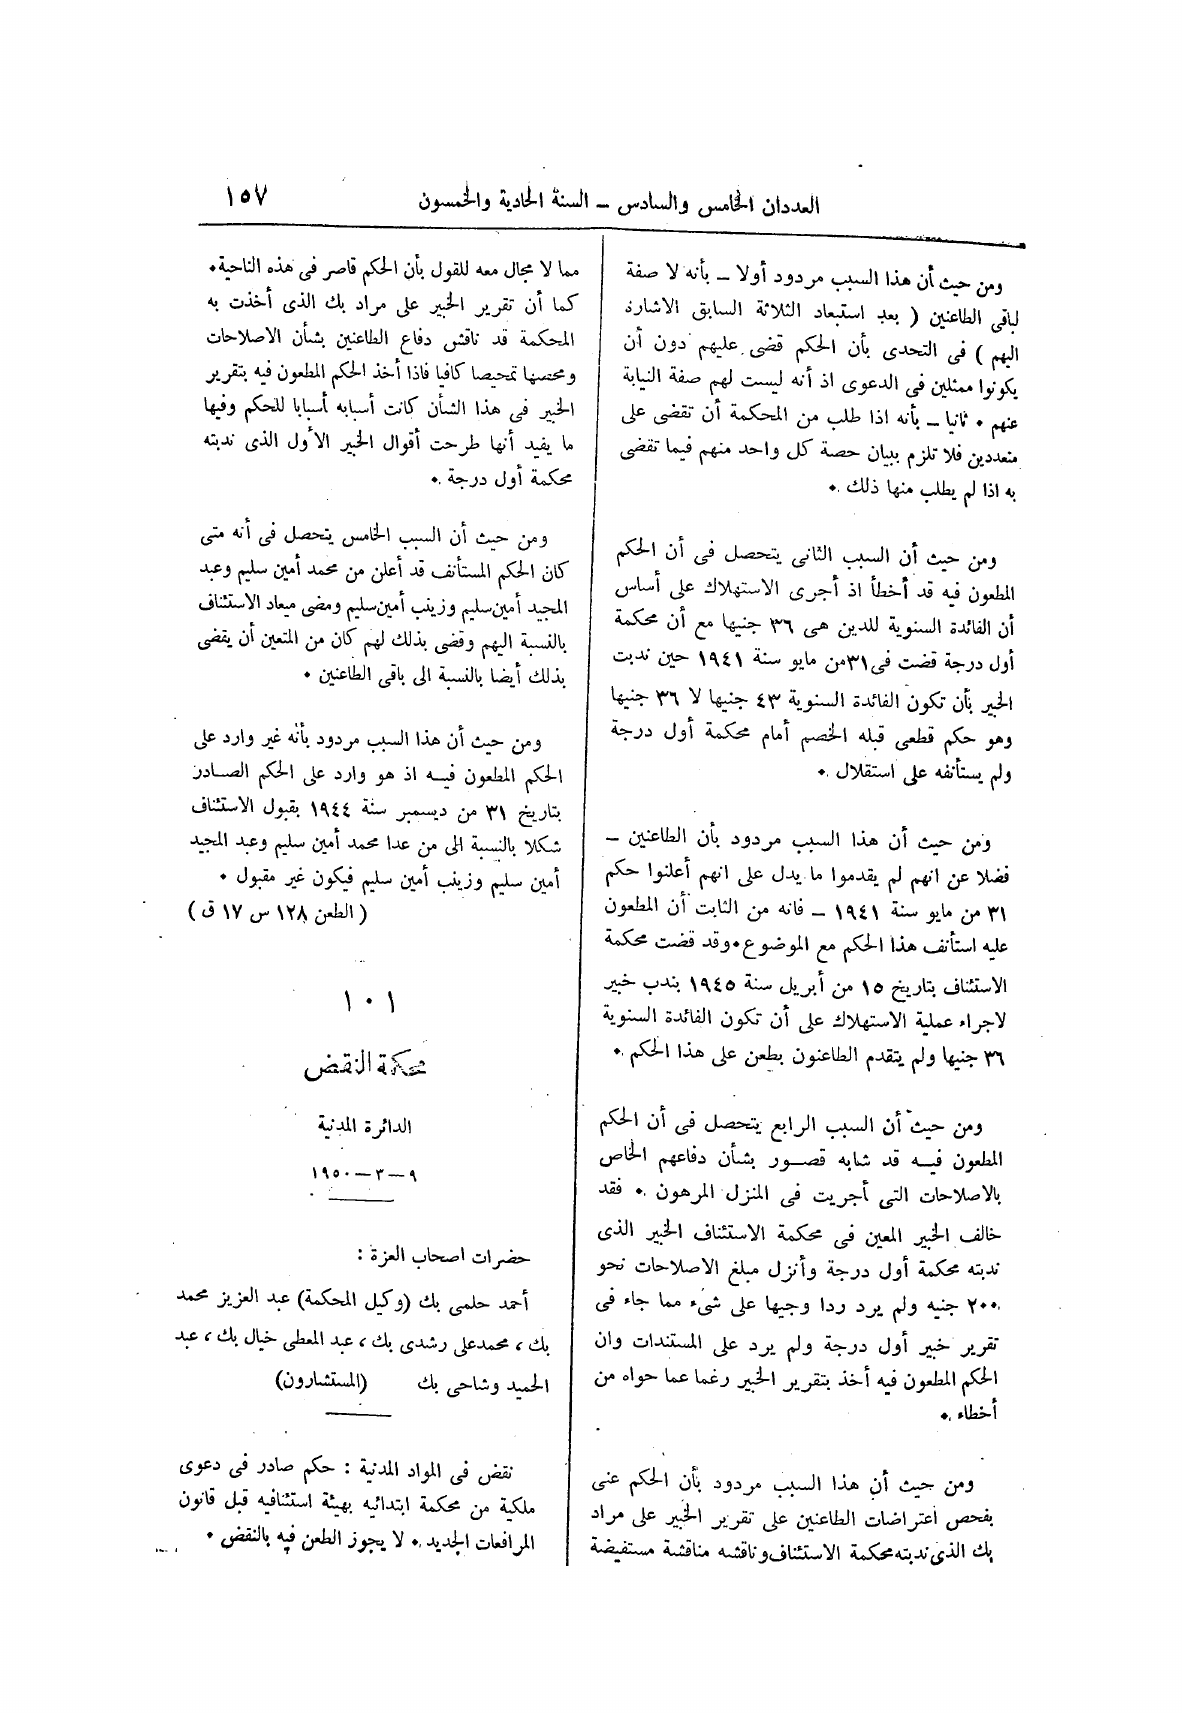 العددان الخامس والسادس – السنة الحادية والخمسون
١٥٧
ومن حيث أن هذا السبب مردود أولا – بأنه لا صفة
لباقى الطاعنين ( بعد استبعاد الثلاثة السابق الاشارة
اليهم ) فى التحدى بأن الحكم قضى عليهم دون أن
يكونوا ممثلين فى الدعوى اذ أنه ليست لهم صفة النيابة
عنهم • ثانيا – بأنه اذا طلب من المحكمة أن تقضى على
متعددين فلا تلزم ببيان حصة كل واحد منهم فيما تقضى
به اذا لم يطلب منها ذلك •
ومن حيث أن السبب الثانى يتحصل فى أن الحكم
المطعون فيه قد أخطأ اذ أجرى الاستهلاك على أساس
أن الفائدة السنوية للدين هى ٣٦ جنيها مع أن محكمة
أول درجة قضت فى ٣١ من مايو سنة ١٩٤١ حين ندبت
الخبير بأن تكون الفائدة السنوية ٤٣ جنيها لا ٣٦ جنيها
وهو حكم قطعى قبله الخصم أمام محكمة أول درجة
ولم يستأنفه على استقلال •
ومن حيث أن هذا السبب مردود بأن الطاعنين –
فضلا عن انهم لم يقدموا ما يدل على انهم أعلنوا حكم
٣١ من مايو سنة ١٩٤١ – فانه من الثابت أن المطعون
عليه استأنف هذا الحكم مع الموضوع • وقد قضت محكمة
الاستئناف بتاريخ ١٥ من أبريل سنة ١٩٤٥ بندب خبير
لاجراء عملية الاستهلاك على أن تكون الفائدة السنوية
٣٦ جنيها ولم يتقدم الطاعنون بطعن على هذا الحكم •
ومن حيث أن السبب الرابع يتحصل فى أن الحكم
المطعون فيه قد شابه قصور بشأن دفاعهم الخاص
بالاصلاحات التى أجريت فى المنزل المرهون • فقد
خالف الخبير المعين فى محكمة الاستئناف الخبير الذى
ندبته محكمة أول درجة وأنزل مبلغ الاصلاحات نحو
٢٠٠ جنيه ولم يرد ردا وجيها على شىء مما جاء فى
تقرير خبير أول درجة ولم يرد على المستندات وان
الحكم المطعون فيه أخذ بتقرير الخبير رغما عما حواه من
أخطاء •
ومن حيث أن هذا السبب مردود بأن الحكم عنى
بفحص اعتراضات الطاعنين على تقرير الخبير على مراد
بك الذى ندبته محكمة الاستئناف وناقشه مناقشة مستفيضة
مما لا مجال معه للقول بأن الحكم قاصر فى هذه الناحية •
كما أن تقرير الخبير على مراد بك الذى أخذت به
المحكمة قد ناقش دفاع الطاعنين بشأن الاصلاحات
ومحصها تمحيصا كافيا فاذا أخذ الحكم المطعون فيه بتقرير
الخبير فى هذا الشأن كانت أسبابه أسبابا للحكم وفيها
ما يفيد أنها طرحت أقوال الخبير الأول الذى ندبته
محكمة أول درجة •
ومن حيث أن السبب الخامس يتحصل فى أنه متى
كان الحكم المستأنف قد أعلن من محمد أمين سليم وعبد
المجيد أمين سليم وزينب أمين سليم ومضى ميعاد الاستئناف
بالنسبة اليهم وقضى بذلك لهم كان من المتعين أن يقضى
بذلك أيضا بالنسبة الى باقى الطاعنين •
ومن حيث أن هذا السبب مردود بأنه غير وارد على
الحكم المطعون فيه اذ هو وارد على الحكم الصادر
بتاريخ ٣١ من ديسمبر سنة ١٩٤٤ بقبول الاستئناف
شكلا بالنسبة الى من عدا محمد أمين سليم وعبد المجيد
أمين سليم وزينب أمين سليم فيكون غير مقبول •
( الطعن ١٢٨ س ١٧ ق )
١٠١
محكمة النقض
الدائرة المدنية
٩ – ٣ – ١٩٥٠
حضرات اصحاب العزة :
أحمد حلمى بك (وكيل المحكمة) عبد العزيز محمد
بك ، محمد على رشدى بك ، عبد المعطى خيال بك ، عبد
الحميد وشاحى بك (المستشارون)
نقض فى المواد المدنية : حكم صادر فى دعوى
ملكية من محكمة ابتدائيه بهيئة استئنافيه قبل قانون
المرافعات الجديد • لا يجوز الطعن فيه بالنقض •